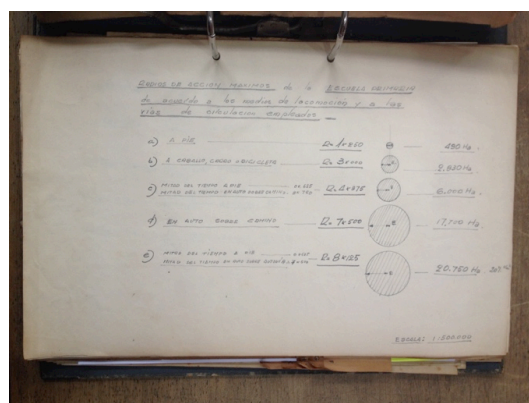 RADIOS DE ACCION MAXIMOS de la ESCUELA PRIMARIA
de acuerdo a los medios de locomoción y a las
vias de circulacion empleados
a) A PIE R. 1K250 490 Ha.
b) A CABALLO, CARRO O BICICLETA R. 3K000 2.820 Ha.
c) MITAD DEL TIEMPO A PIE
MITAD DEL TIEMPO EN AUTO SOBRE CAMINO R. 4K375 6.000 Ha.
d) EN AUTO SOBRE CAMINO R. 7K500 17.700 Ha.
e) MITAD DEL TIEMPO A PIE
MITAD DEL TIEMPO EN R. 8K125 20.750 Ha.
ESCALA: 1:500.000